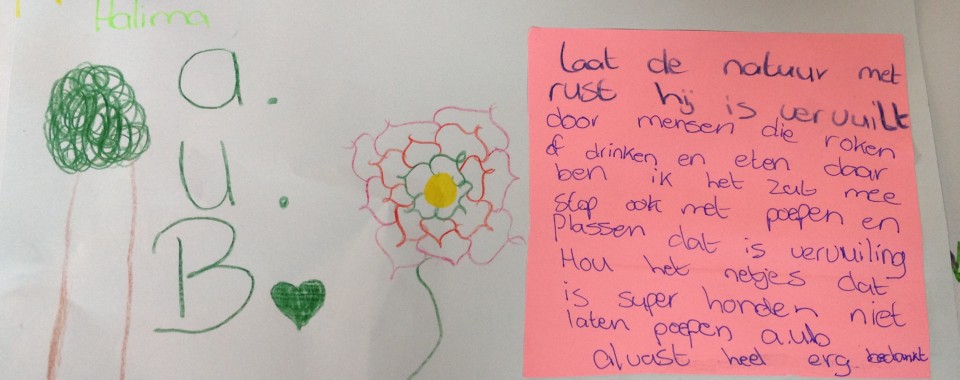 Halima
a.
u.
B
laat de natuur met
rust hij is vervuilt
door mensen die roken
of drinken en eten daar
ben ik het zat mee
stop ook met poepen en
plassen dat is vervuiling
Hou het netjes dat
is super honden niet
laten poepen a.u.b
alvast heel erg bedankt